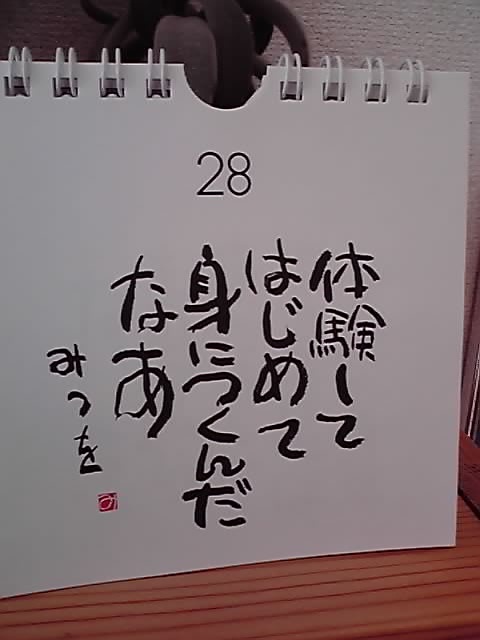 28
体験して
はじめて
身につくんだ
なあ
みつを
み